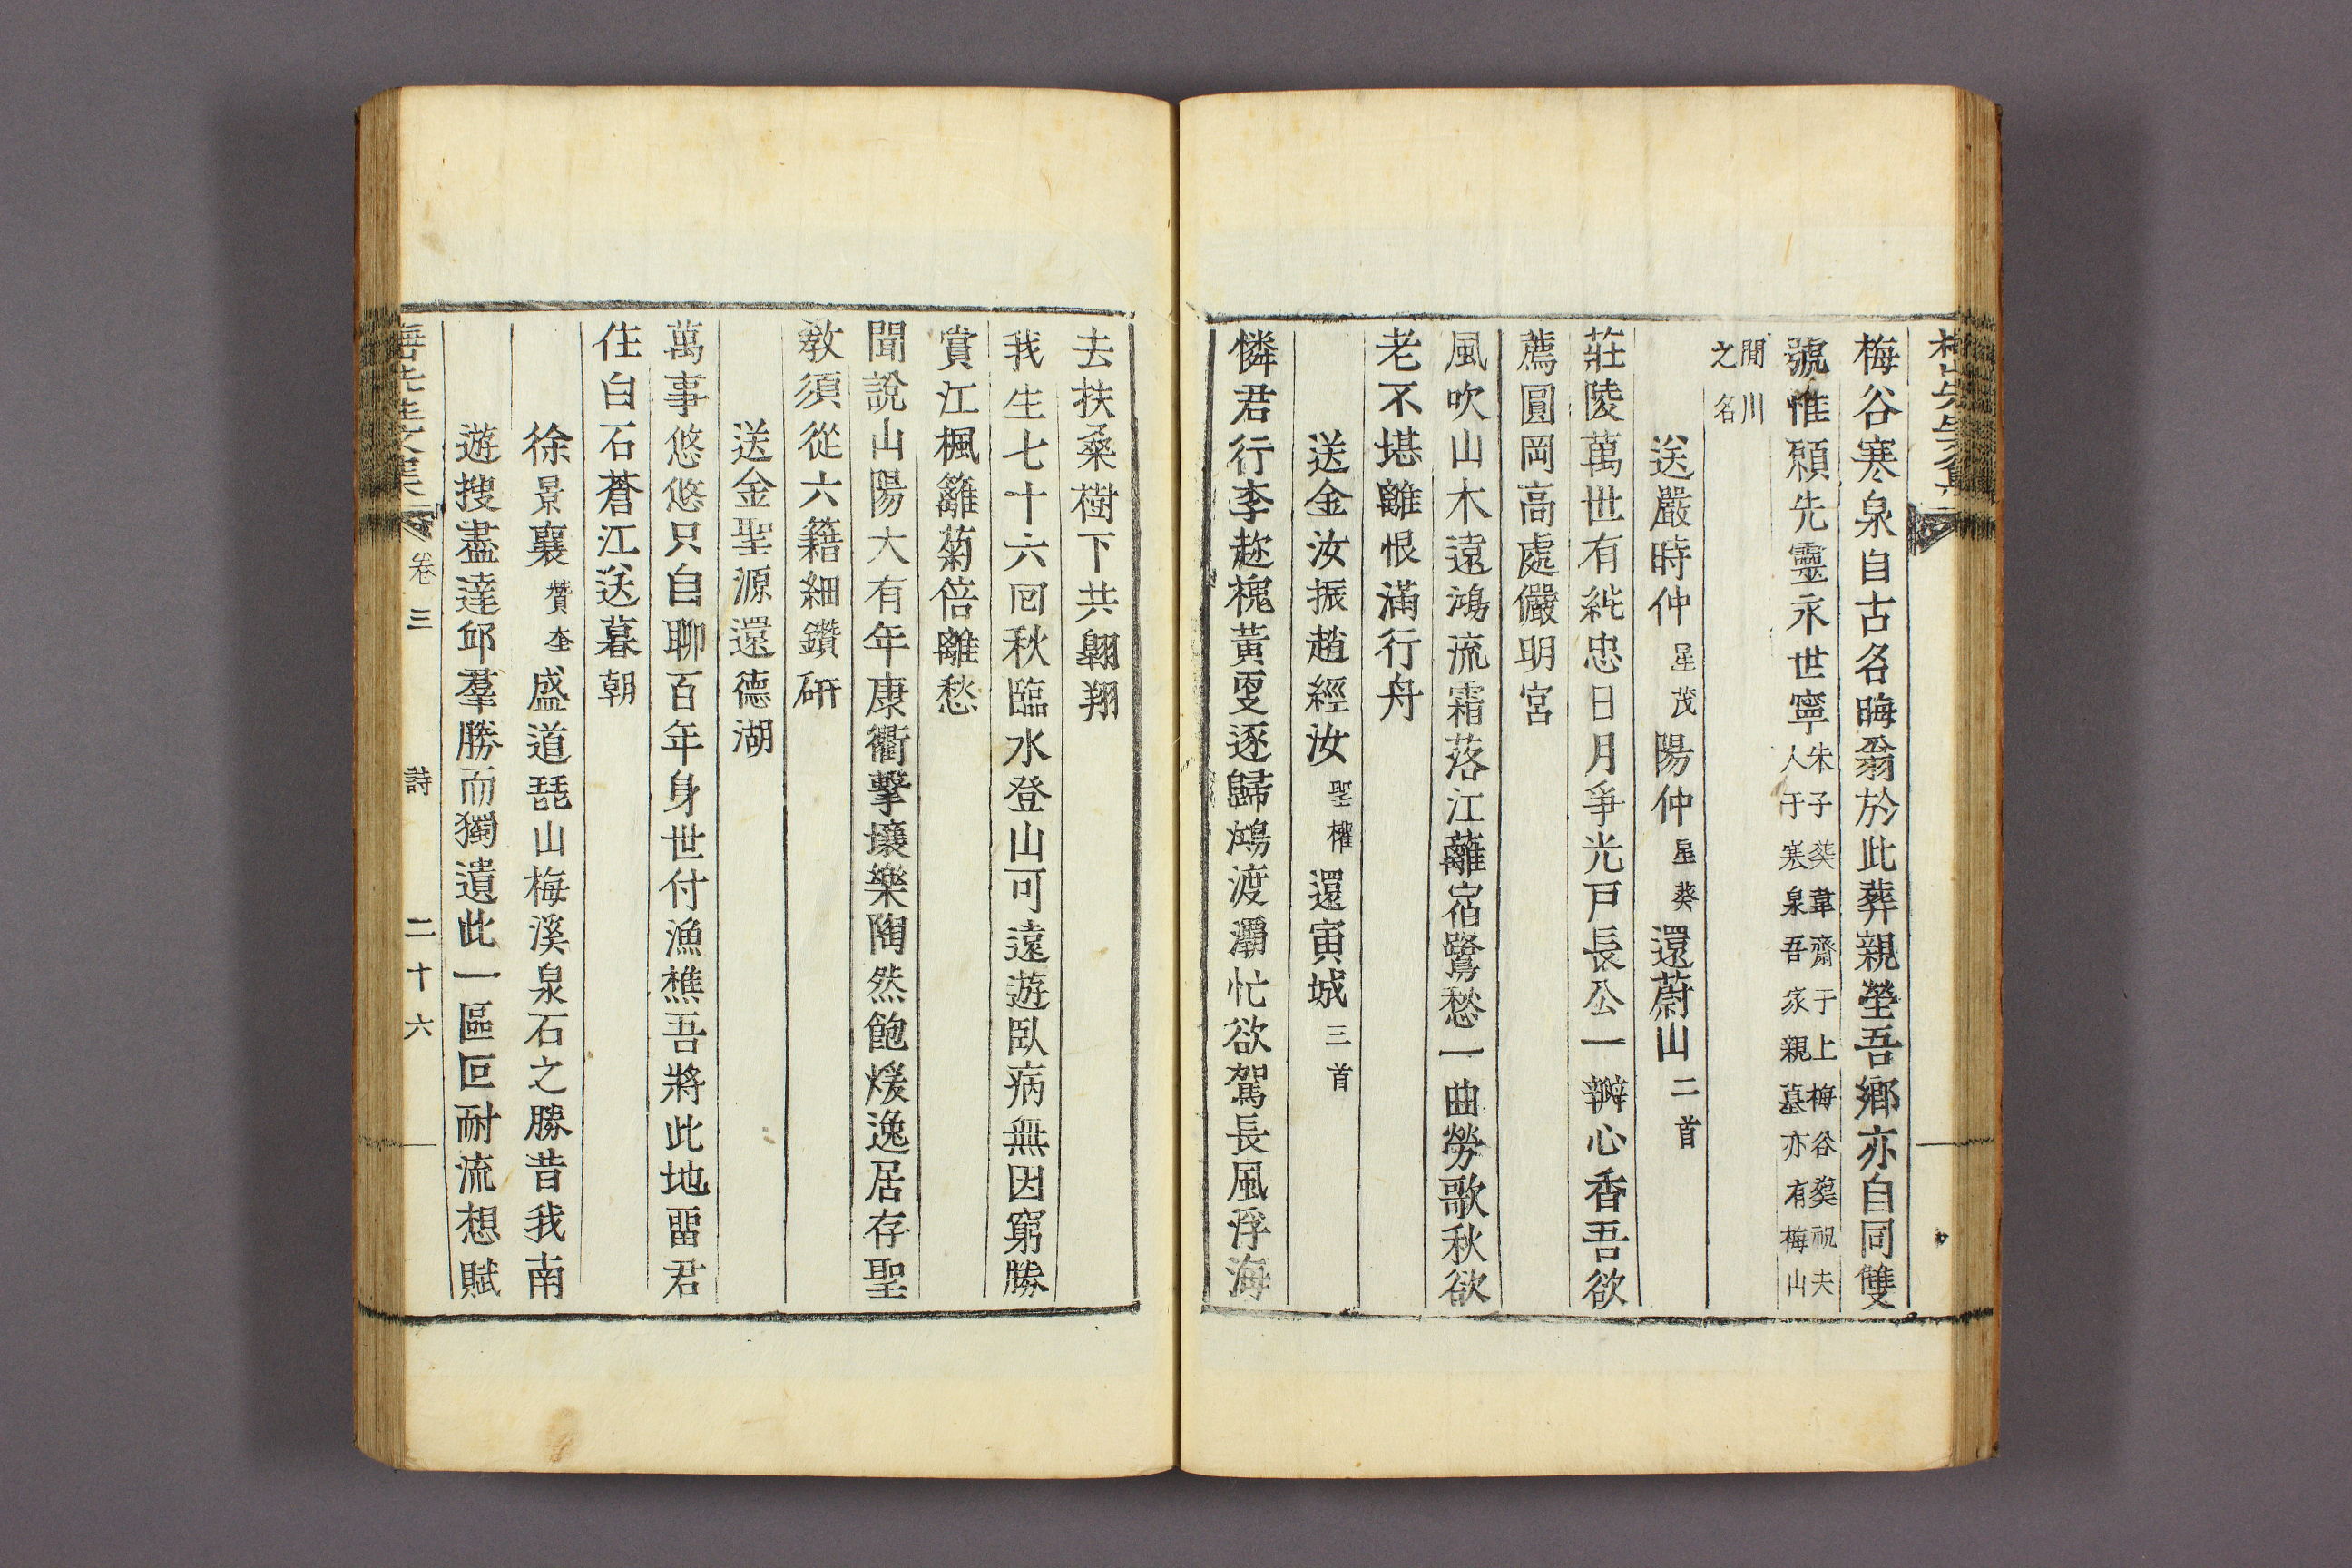 梅谷寒泉自古名晦翁於此葬親塋吾鄉亦自同雙
號惟願先靈永世寧朱子葬韋齋于上梅谷葬祝夫
人于寒泉吾家親墓亦有梅山
閒川
之名
送嚴時仲星茂陽仲星葵還蔚山二首
莊陵萬世有純忠日月爭光戸長公一瓣心香吾欲
薦圓岡高處儼明宮
風吹山木遠鴻流霜落江蘺宿鷺愁一曲勞歌秋欲
老不堪離恨滿行舟
送金汝振趙經汝聖權還寅城三首
憐君行李趂槐黃更逐歸鴻渡灞忙欲駕長風浮海
去扶桑樹下共翺翔
我生七十六回秋臨水登山可遠遊臥病無因窮勝
賞江楓籬菊倍離愁
聞說山陽大有年康衢擊壤樂陶然飽煖逸居存聖
教須從六籍細鑽研
送金聖源還德湖
萬事悠悠只自聊百年身世付漁樵吾將此地畱君
住白石蒼江送暮朝
徐景襄贊奎盛道琵山梅溪泉石之勝昔我南
遊搜盡達邱羣勝而獨遺此一區叵耐流想賦
梅山先生文集 卷三 詩 二十六